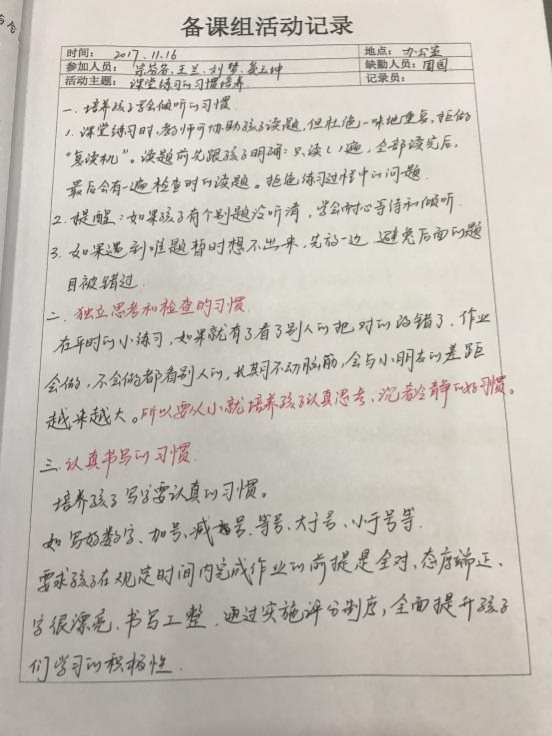 备课组活动记录
时间： 2017.11.16 地点：办公室
参加人员： 王兰、刘梦、 缺勤人员：周园
活动主题： 课堂练习的习惯培养 记录员：
一、培养孩子学会倾听的习惯.
1. 课堂练习时，教师可协助孩子读题，但杜绝一味地重复，拒做
“复读机”。读题前先跟孩子明确：只读(1)遍，全部读完后，
最后会有一遍检查时的读题。拒绝练习过程中的问题.
2. 提醒：如果孩子有个别题没听清，学会耐心等待和倾听.
3. 如果遇到难题暂时想不出来，先放一边，避免后面的题
目被错过.
二、独立思考和检查的习惯.
在平时的小练习，如果就有了看了别人的把对的改错了，作业
会做，不会做都看别人的，长期不动脑筋，会与小朋友的差距
越来越大。所以要从小就培养孩子认真思考、沉着冷静的好习惯。
三、认真书写的习惯.
培养孩子写字要认真的习惯。
如写好数字、加号、减号、等号、大于号、小于号等.
要求孩子在规定时间内完成作业的前提是全对、态度端正、
字很漂亮、书写工整，通过实施评分制度，全面提升孩子
们学习的积极性.